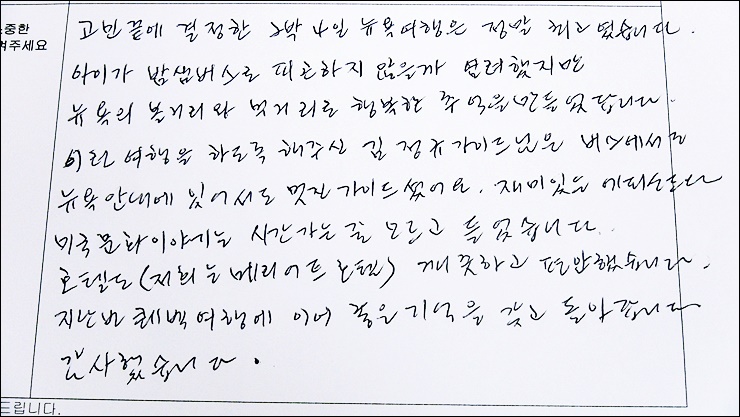 소중한
겨주세요
고민끝에 결정한 2박 4일 뉴욕여행은 정말 최고였습니다.
아이가 밤샘버스로 피곤하지 않을까 염려했지만
뉴욕의 볼거리와 먹거리로 행복한 추억을 만들었답니다.
이런 여행을 하도록 해주신 김 정규가이드님은 버스에서도
뉴욕안내에 있어서도 멋진가이드셨어요. 재미있는 에피소드나
미국문화이야기는 시간가는줄 모르고 들었습니다.
호텔도(저희는 메리어트 호텔) 깨끗하고 편안했습니다.
지난번 퀘벡여행에 이어 좋은기억을 갖고 돌아갑니다
감사했습니다.
드립니다.